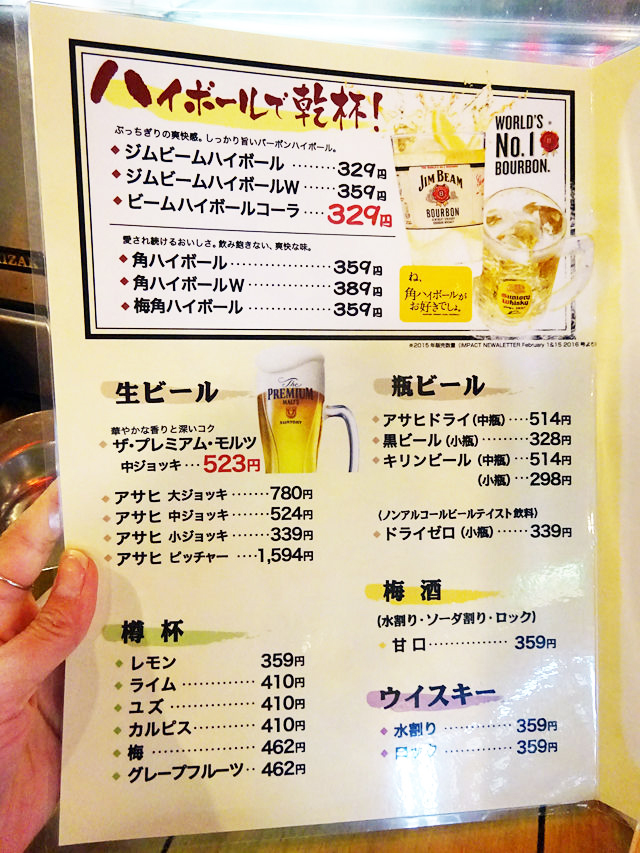 ハイボールで乾杯!
ぶっちぎりの爽快感。しっかり旨いバーボンハイボール。
ジムビームハイボール ········ 329円
ジムビームハイボールW ····· 359円
ビームハイボールコーラ ···· 329円
愛され続けるおいしさ。飲み飽きない、爽快な味。
角ハイボール ················ 359円
角ハイボールW ·············· 389円
梅角ハイボール ·············· 359円
WORLD'S
No.1
BOURBON.
JIM BEAM
BOURBON
ね、
角ハイボールが
お好きでしょ。
SUNTORY
Whisky
※2015年販売数量(IMPACT NEWALETTER February 1&15 2016 号より)
生ビール
華やかな香りと深いコク
ザ・プレミアム・モルツ
中ジョッキ ··· 523円
The
PREMIUM
MALT'S
SUNTORY
アサヒ 大ジョッキ ······· 780円
アサヒ 中ジョッキ ······· 524円
アサヒ 小ジョッキ ······· 339円
アサヒ ピッチャー ···· 1,594円
樽杯
レモン 359円
ライム ············ 410円
ユズ ·············· 410円
カルピス ·········· 410円
梅 ················ 462円
グレープフルーツ ·· 462円
瓶ビール
アサヒドライ(中瓶) ···· 514円
黒ビール(小瓶) ········ 328円
キリンビール (中瓶) ··· 514円
(小瓶) ··· 298円
(ノンアルコールビールテイスト飲料)
ドライゼロ(小瓶) ······ 339円
梅酒
(水割り・ソーダ割り・ロック)
甘口 ··············· 359円
ウイスキー
水割り ············· 359円
ロック ············· 359円